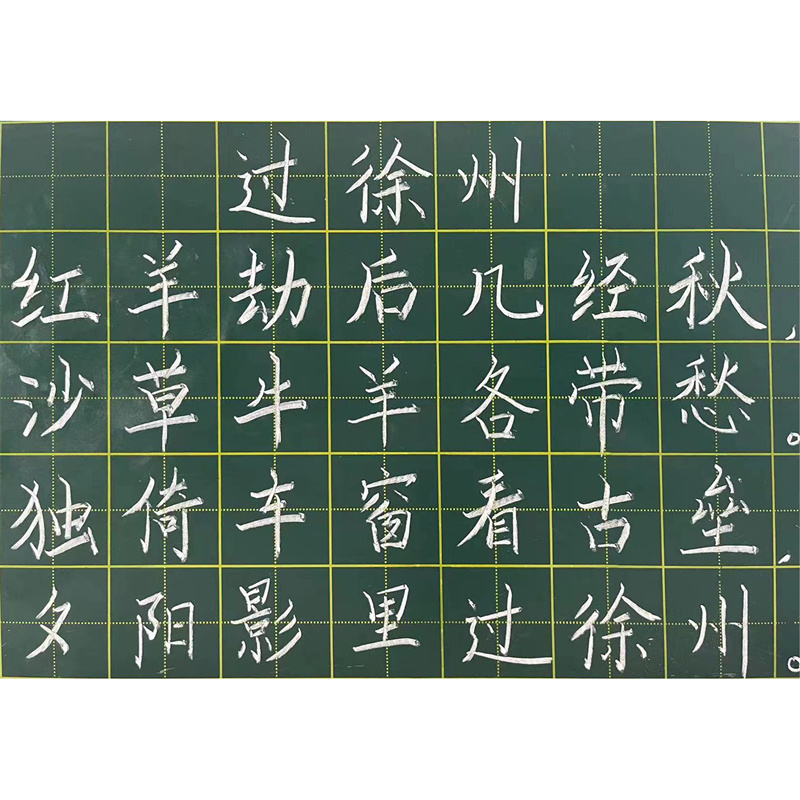 过徐州
红羊劫后几经秋,
沙草牛羊各带愁。
独倚车窗看古垒,
夕阳影里过徐州。